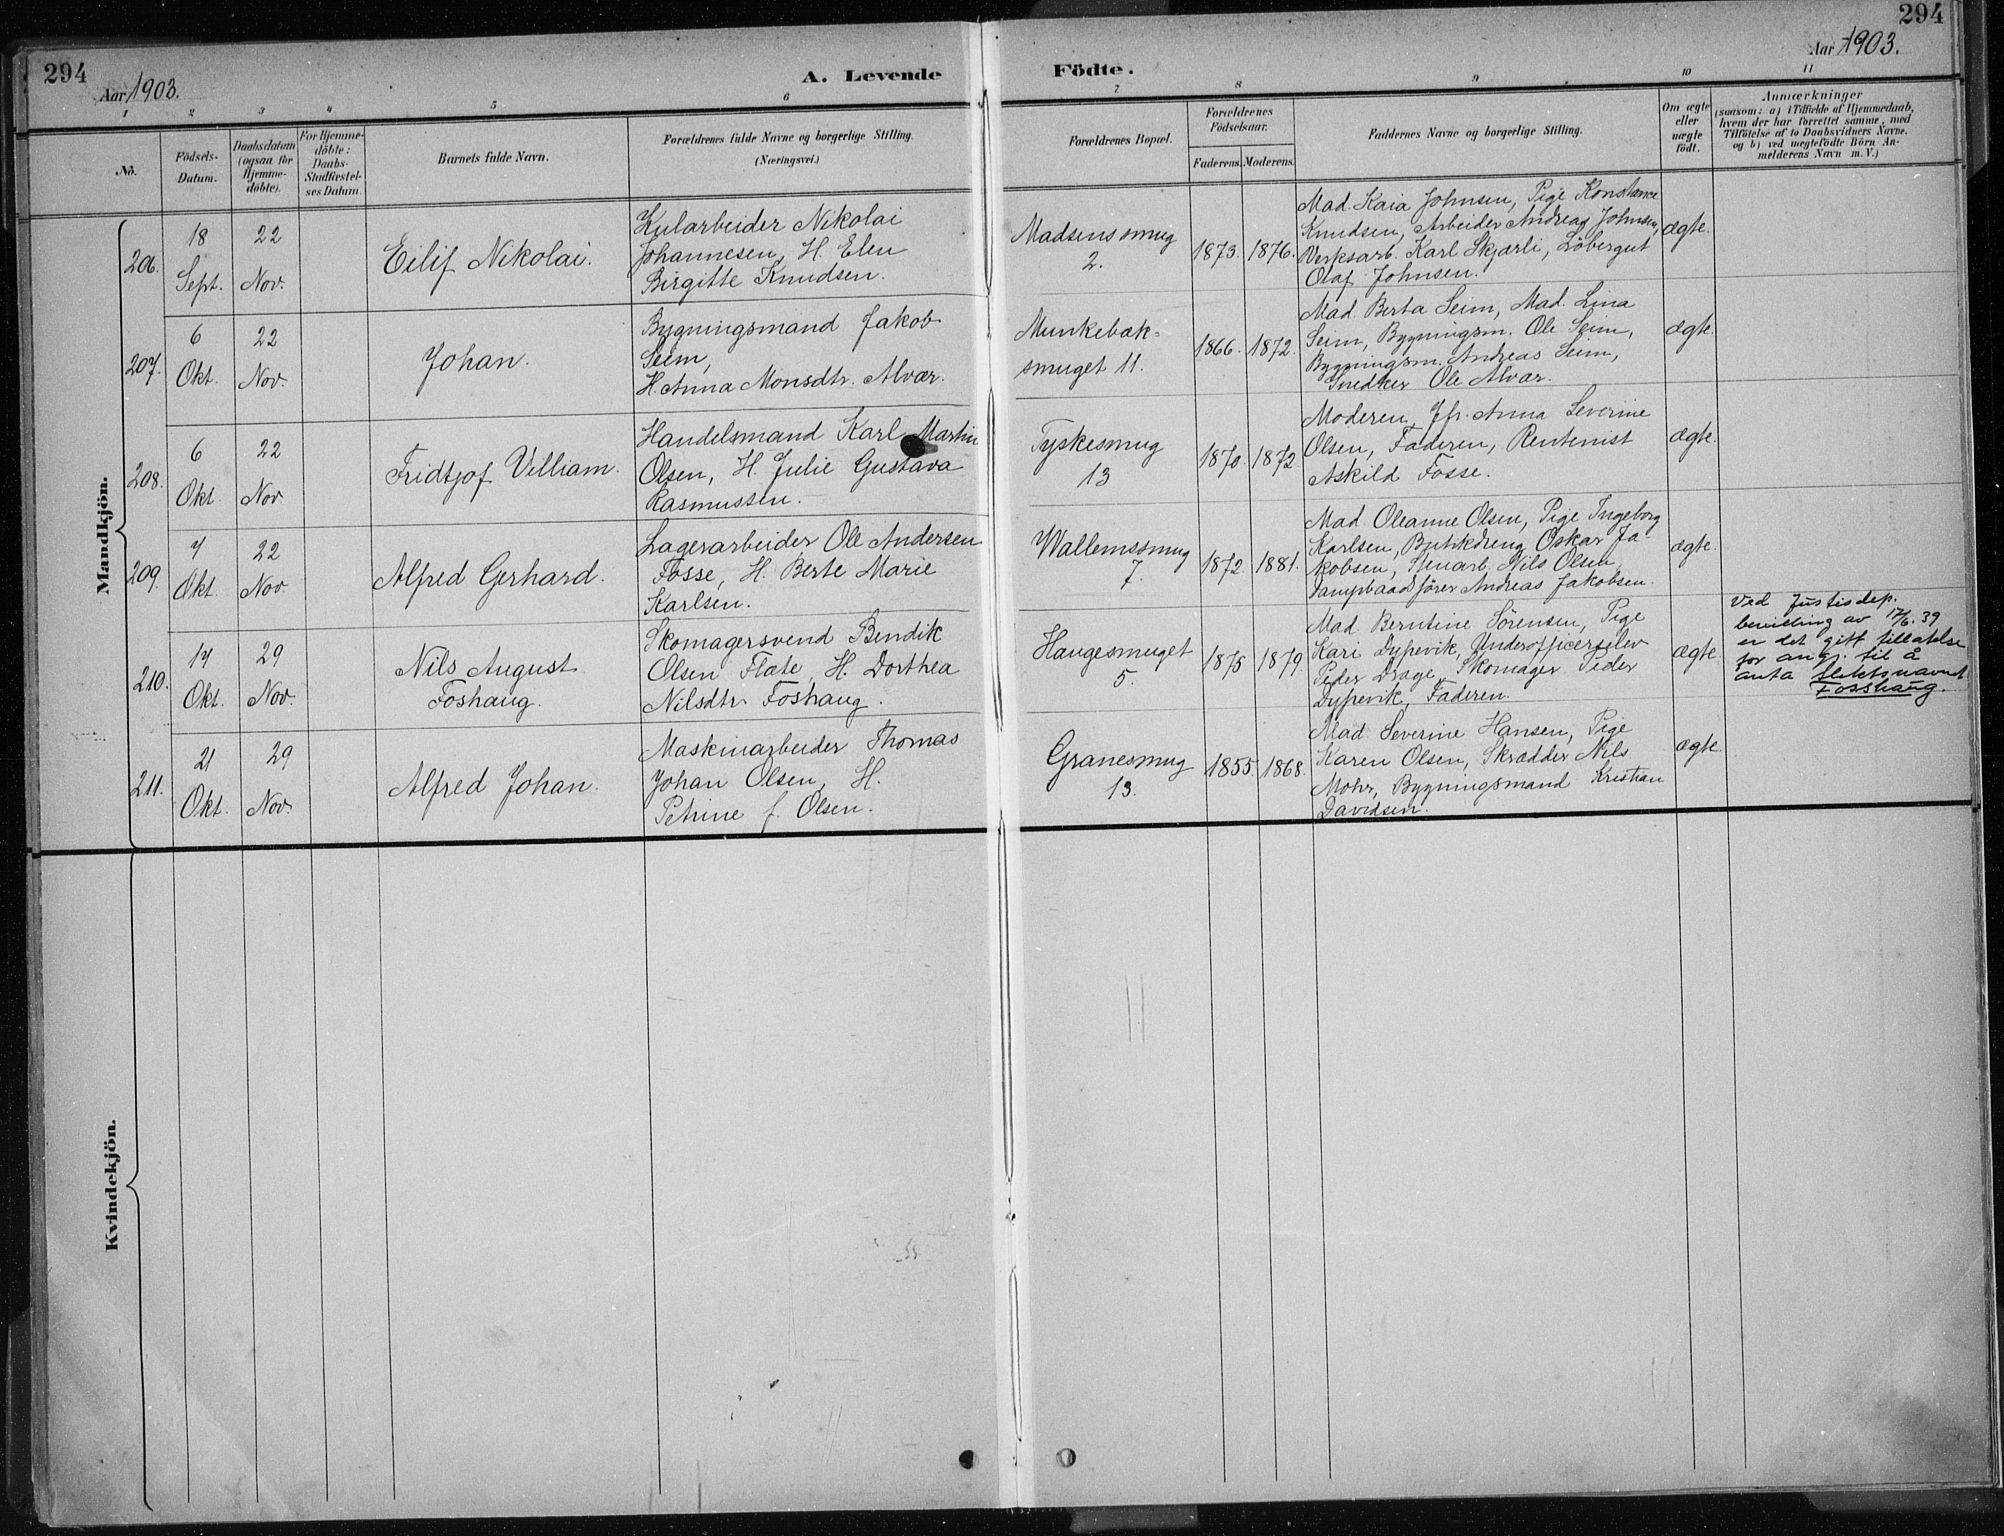 294
294
Aar 1903.
A. Levende
Födte.
Aar 1903.
1
2
3
4
5
6
7
8
9
10
11
No.
Födsels-
Datum.
Daabsdatum
(ogsaa for
Hjemme-
döbte).
For Hjemme-
döbte:
Daabs-
Stadfæstel-
ses Datum.
Barnets fulde Navn.
Forældrenes fulde Navne og borgerlige Stilling.
(Næringsvei.)
Forældrenes Bopæl.
Forældrenes
Födselsaar.
Faderens.
Moderens.
Faddernes Navne og borgerlige Stilling.
Om ægte
eller
uægte
födt.
Anmærkninger
(saasom: a) i Tilfælde af Hjemmedaab,
hvem der har forrettet samme, med
Tilföielse af to Daabsvidners Navne.
og b) ved uegtefödte Börn An-
melderens Navn m. V.)
Mandkjön.
206.
18
Sept.
22
Nov.
Eilif Nikolai.
Kularbeider Nikolai
Johannesen, H. Elen
Birgitte Knudsen.
Madsenssmug
2.
1873.
1876.
Mad. Kaia Johnsen, Pige Konstance
Knudsen, Arbeider Andreas Johnsen,
Verksarb. Karl Skjærli, Löbergut
Olaf Johnsen.
ægte.
207.
6
Okt.
22
Nov.
Johan.
Bygningsmand Jakob
Seim,
H. Anna Monsdtr. Alvær.
Munkebæk-
smuget 11.
1866.
1872.
Mad Berta Seim, Mad. Lina
Seim, Bygningsm. Ole Seim,
Bygningsm. Andreas Seim,
Snedker Ole Alvær.
ægte.
208.
6
Okt.
22
Nov
Fridtjof Villiam.
Handelsmand Karl Martin
Olsen, H. Julie Gustava
Rasmussen.
Tyskesmug
13
1870.
1872
Moderen, Jfr. Anna Severine
Olsen, Faderen, Rentenist
Askild Fosse.
ægte.
209.
7
Okt.
22
Nov.
Alfred Gerhard.
Lagerarbeider Ole Andersen
Fosse, H. Berte Marie
Karlsen.
Wallemssmug
7.
1872
1881.
Mad Oleanne Olsen, Pige Ingeborg
Karlsen, Butikdreng Oskar Ja-
kobsen, Stenarb. Nils Olsen,
Dampbaadsförer Andreas Jakobsen.
ægte.
210.
14
Okt.
29
Nov.
Nils August
Foshaug.
Skomagersvend Bendik
Olsen Flate, H. Dorthea
Nilsdtr Foshaug.
Haugesmuget
5.
1875
1879.
Mad. Berntine Sörensen, Pige
Kari Dypevik, Underofficerselev
Peder Drage, Skomager Peder
Dypevik, Faderen.
ægte.
Ved Justisdep.
bevilling av 17/6. 39
er det gitt tillatelse
for ang. til å
anta slektsnavnet
Fosshaug.
211.
21
Okt.
29
Nov.
Alfred Johan.
Maskinarbeider Thomas
Johan Olsen, H.
Petrine f. Olsen.
Granesmug
13.
1855.
1868.
Mad Severine Hansen, Pige
Karen Olsen, Skrædder Nils
Mohr, Bygningsmand Kristian
Davidsen.
ægte.
Kvindekjön.